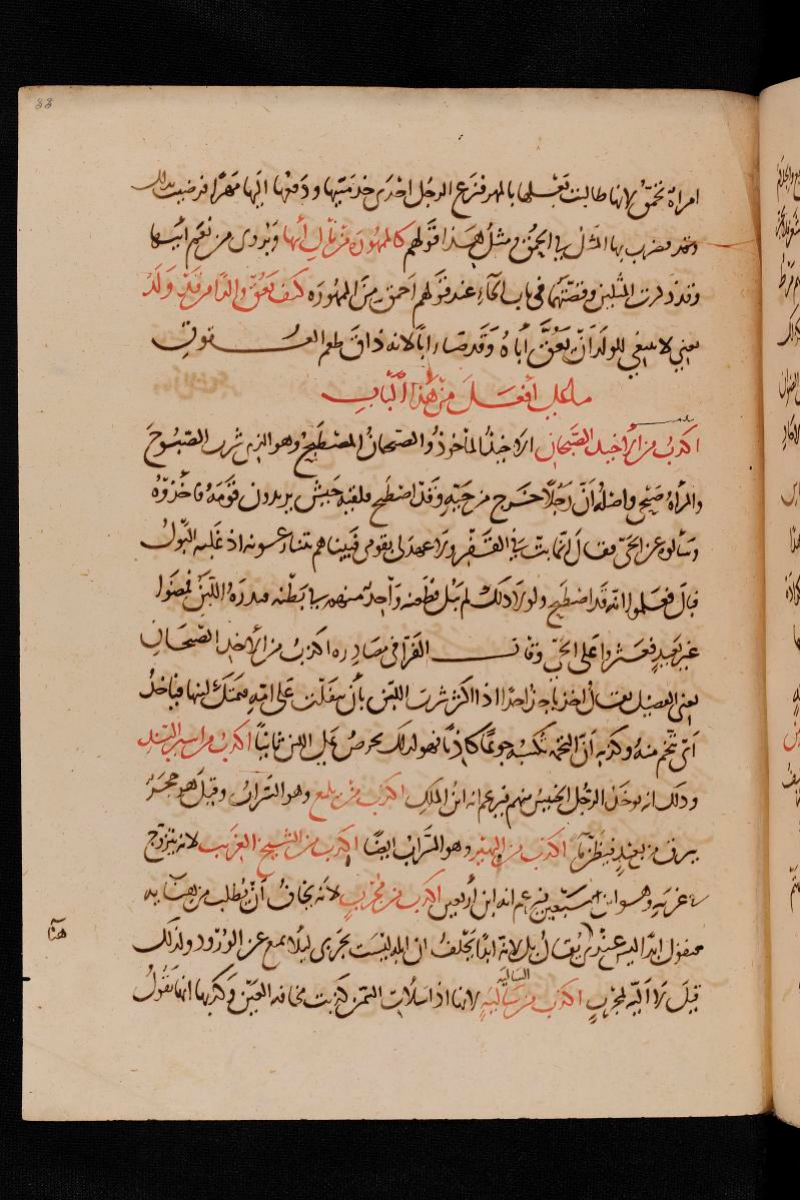 33
امراة تحمق لانها طالبت بعلها بالمهر فنزع الرجل احدى خدمتيها ودفعها اليها مهرا فرضيت بذلك
فضرب بها المثل في الحمق ومثل هذا قولهم كالممهورة من مال ابيها ويروى من نعم ابيها
وقد ذكرت المثلين وقصتهما في باب الحاء عند قولهم احمق من الممهوره كيف يعق والدا من قد ولد
يعني لا ينبغي للولد ان يعق أباه وقد صار ابا لانه ذاق طعم العقوق
ما على أفعل من هذا الباب
اكذب من الاخيذ الصبحان الاخيذ الماخوذ والصبحان المصطبح وهو الذي شرب الصبوح
والمرأة صبحى واصله أن رجلا خرج من حيه وقد اصطبح فلقيه جيش يريدون قومه فاخذوه
وسألوه عن الحي فقال انما بت في القفر ولا عهد لي بقومي فبينا هم يتنازعون اذ غلبه البول
فبال فعلموا انه قد اصطبح ولولا ذلك لم يبل فطعنه واحد منهم في بطنه فبدره اللبن فمضوا
غير بعيد فعثروا على الحي وقال الفرا في مصادره اكذب من الاخذ الصبحان
يعني الفصيل يقال اخذ ياخذ اخذا اذا اكثر شرب اللبن بأن يتفلت على امه فيمتك لبنها فياخذ
أي يتخم منه وكذبه أن التخمة تكسبه جوعا كاذبا فهو لذلك يحرص على اللبن ثانيا اكذب من اسير السند
وذلك انه يوخذ الرجل الخسيس منهم فيزعم انه ابن الملك اكذب من يلمع وهو السراب وقيل هو حجر
يبرق من بعيد فيظن ما اكذب من اليهير وهو السراب ايضا اكذب من الشيخ الغريب لانه يتزوج
في غربته وهو ابن سبعين فيزعم انه ابن أربعين اكذب من مجرب لانه يخاف أن يطلب من هنايه
فيقول ابدا ليس عندي يقال بل لانه ابدا يحلف ان ابله ليست بجربى ليلا يمنع عن الورود ولذلك
هنا
قيل لا الية لمجرب اكذب من سالية لانها اذا سلات السمن كذبت مخافة العين وكذبها انها تقول
السالية